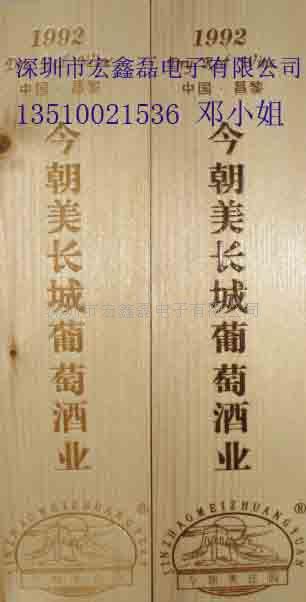 1992
1992
Dry Red Wine
Dry Red Wine
深圳市宏鑫磊电子有限公司
中国·昌黎
中国·昌黎
13510021536 邓小姐
今朝美长城葡萄酒业
今朝美长城葡萄酒业
深圳市宏鑫磊电子有限公司
JINZHAOMEIZHUANGYUAN
JINZHAOMEIZHUANGYUAN
®
今朝美庄园
今朝美庄园